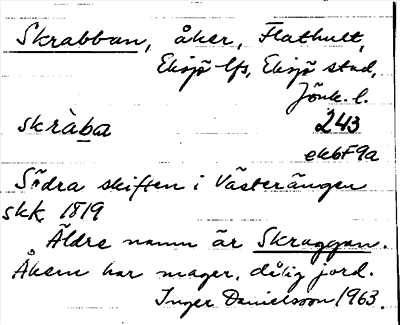 Skrabban, åker, Flathult,
Eksjö lfs, Eksjö stad,
Jönk. l.
skràba 243
ek6F9a
Södra skiften i Västerängen
skk 1819
Äldre namn är Skraggan.
Åkern har mager, dålig jord.
Inger Danielsson 1963.